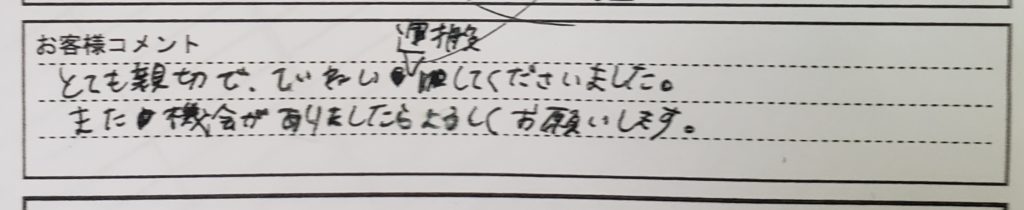 お客様コメント
運搬
とても親切で、ていねいしてくださいました。
また機会がありましたらよろしくお願いします。